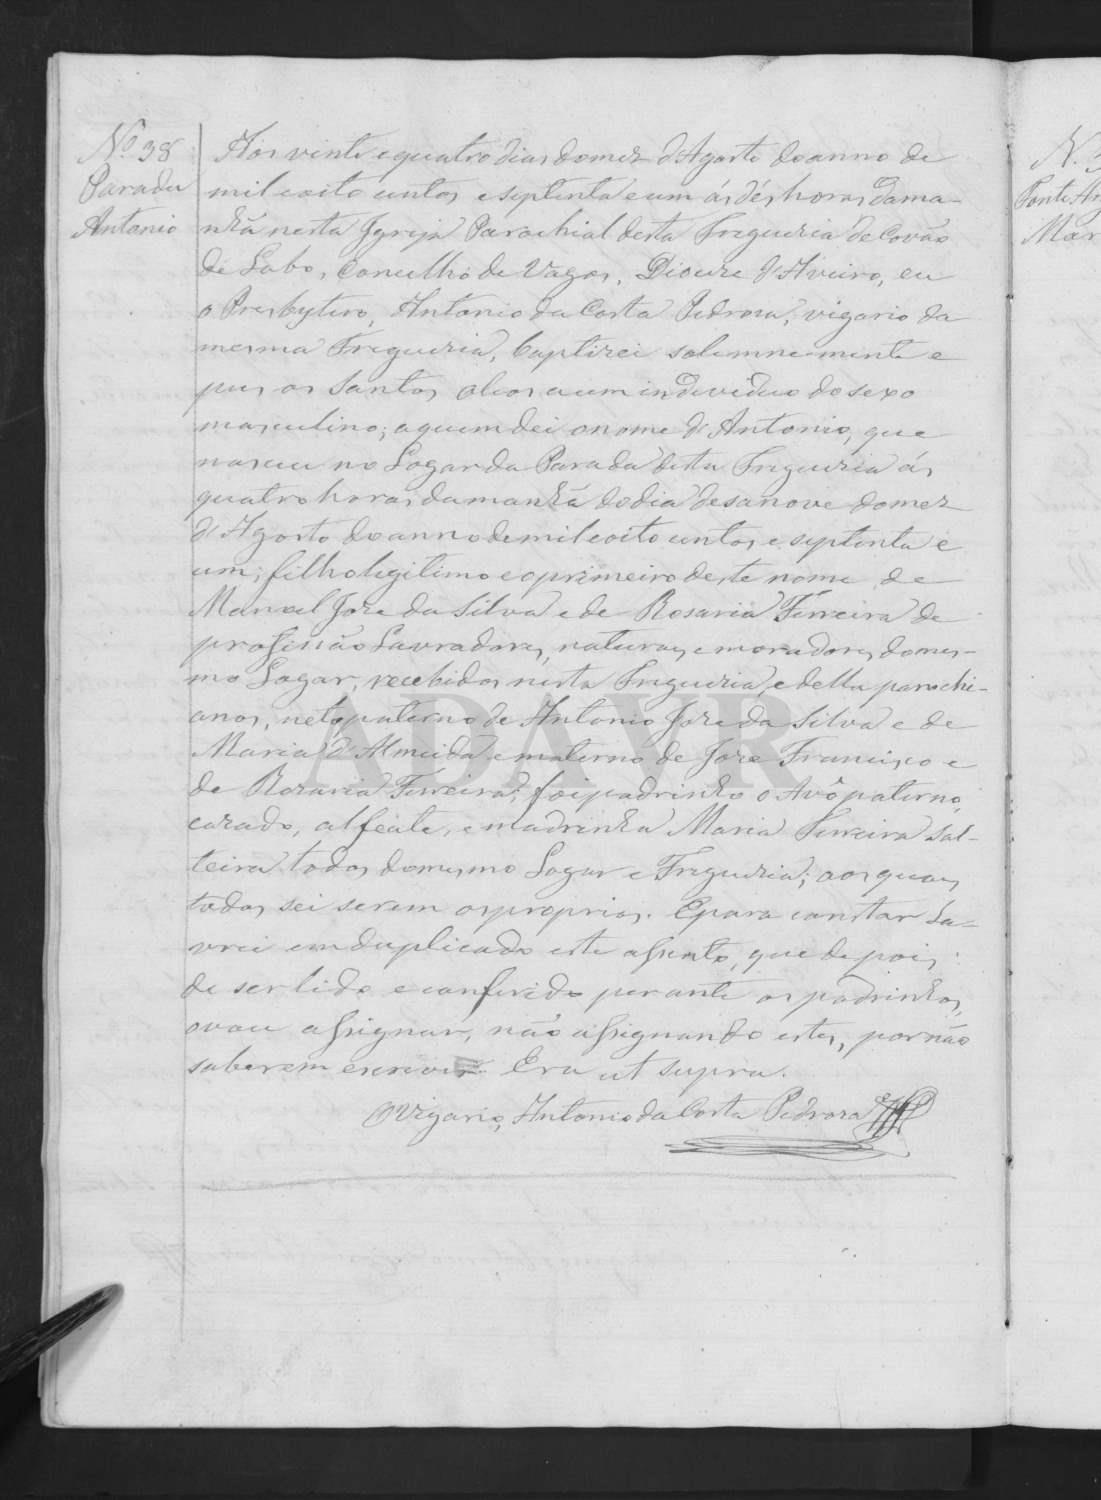 Nº 38
Parada
Antonio
Aos vinte e quatro dias do mez d'Agosto do anno de
mil oito centos e septenta e um ás dés horas da ma-
nhã nesta Igreja Parochial desta Freguezia de Covão
de Lobo, Concelho de Vagos, Diocize d'Aveiro, eu
o Presbytero, Antonio da Costa Pedrosa, vigario da
mesma Freguezia, baptizei solemnemente e
pus os Santos oleos a um individuo do sexo
masculino; a quem dei o nome d'Antonio, que
nasceu no Logar da Parada desta Freguezia ás
quatro horas da manhã do dia desanove do mez
d'Agosto do anno de mil oito centos e septenta e
um; filho legitimo e o primeiro deste nome de
Manoel Joze da Silva e de Rosaria Ferreira de
profissão Lavradores, naturaes e moradores do mes-
mo Logar, recebidos nesta Freguezia, e della parochi-
anos, neto paterno de Antonio Joze da Silva e de
Maria d'Almeida e materno de Joze Francisco e
de Rozaria Ferreira; foi padrinho o Avô paterno,
cazado, alfeiate, e madrinha Maria Ferreira sol-
teira todos do mesmo Logar e Freguezia; aos quaes
todos sei serem os proprios. E para constar la-
vrei em duplicado este assento, que depois
de ser lido e conferido perante os padrinhos,
o vou assignar, não assignando estes, por não
saberem escrever. Era ut supra.
O Vigario, Antonio da Costa Pedrosa
ADAVR
N.
Ponte
Mar